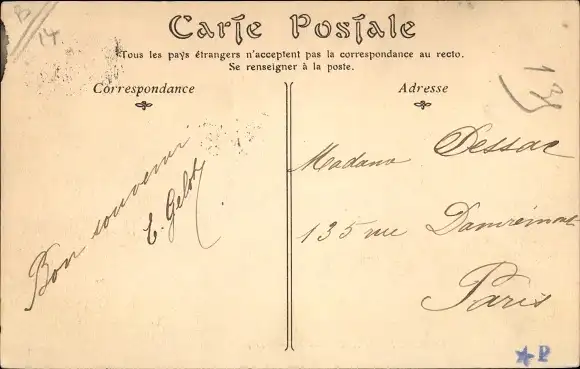 B
14
Carte Postale
Tous les pays étrangers n'acceptent pas la correspondance au recto.
Se renseigner à la poste.
Correspondance
Bon souvenir
E. Gelot
Adresse
13
Madame Dessac
135 rue Damrémont
Paris
P